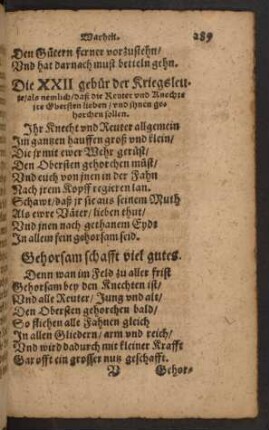 Warheit. 289
Den Gütern ferner vorzustehn/
Vnd hat darnach must betteln gehn.
Die XXII gebür der Kriegsleu-
te/als nemlich/daß die Reuter vnd Knechte
jre Obersten lieben/vnd jhnen ge-
horchen sollen.
Ihr Knecht vnd Reuter allgemein
Im gantzen hauffen groß vnd klein/
Die jr mit ewer Wehr gerüst/
Den Obersten gehorchen müst/
Vnd euch von jnen in der Fahn
Nach jrem Kopff regieren lan.
Schawt/daß jr sie aus seinem Muth
Als ewre Väter/lieben thut/
Vnd jnen nach gethanem Eyde
In allem fein gehorsam seid.
Gehorsam schafft viel gutes.
Denn wan im Feld zu aller frist
Gehorsam bey den Knechten ist/
Vnd alle Reuter/Jung vnd alt/
Den Obersten gehorchen bald/
So stehen alle Fahnen gleich
In allen Gliedern/arm vnd reich/
Vnd wird dadurch mit kleiner Krafft
Gar offt ein grosser nutz geschafft.
V Gehor-